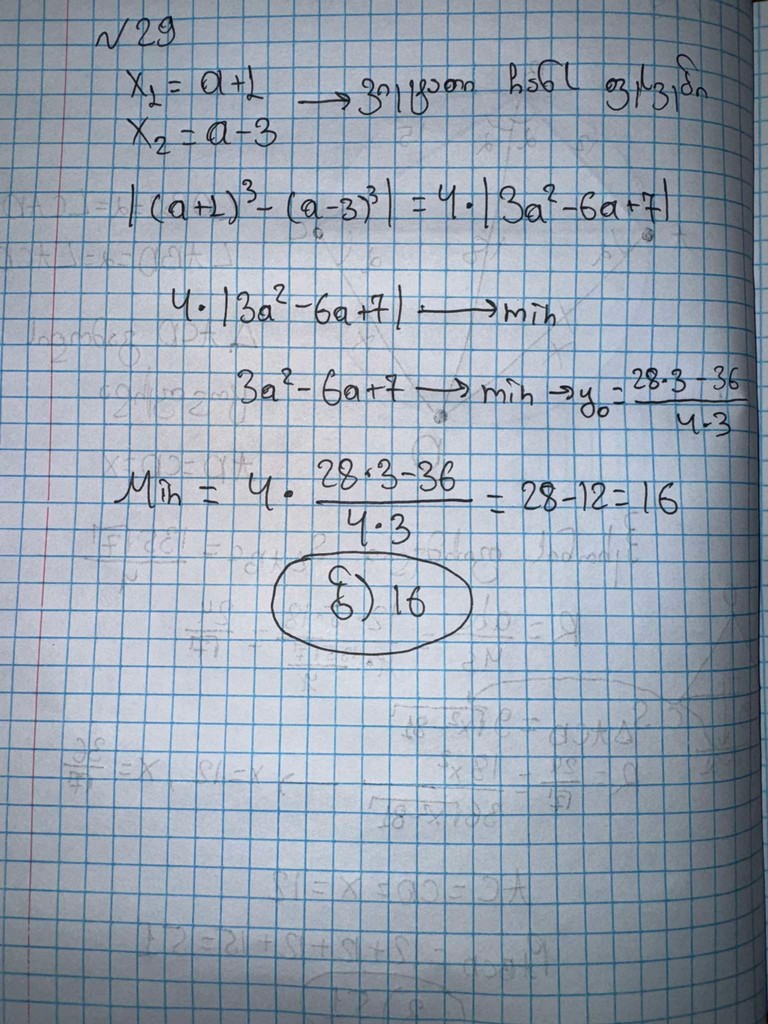 №29
x₁ = a+1
x₂ = a-3
→ ვიეტით ჩანს
|(a+1)³ - (a-3)³| = 4·|3a²-6a+7|
4·|3a²-6a+7| → min
3a²-6a+7 → min → y₀ = \frac{28·3-36}{4·3}
Min = 4· \frac{28·3-36}{4·3} = 28-12=16
16